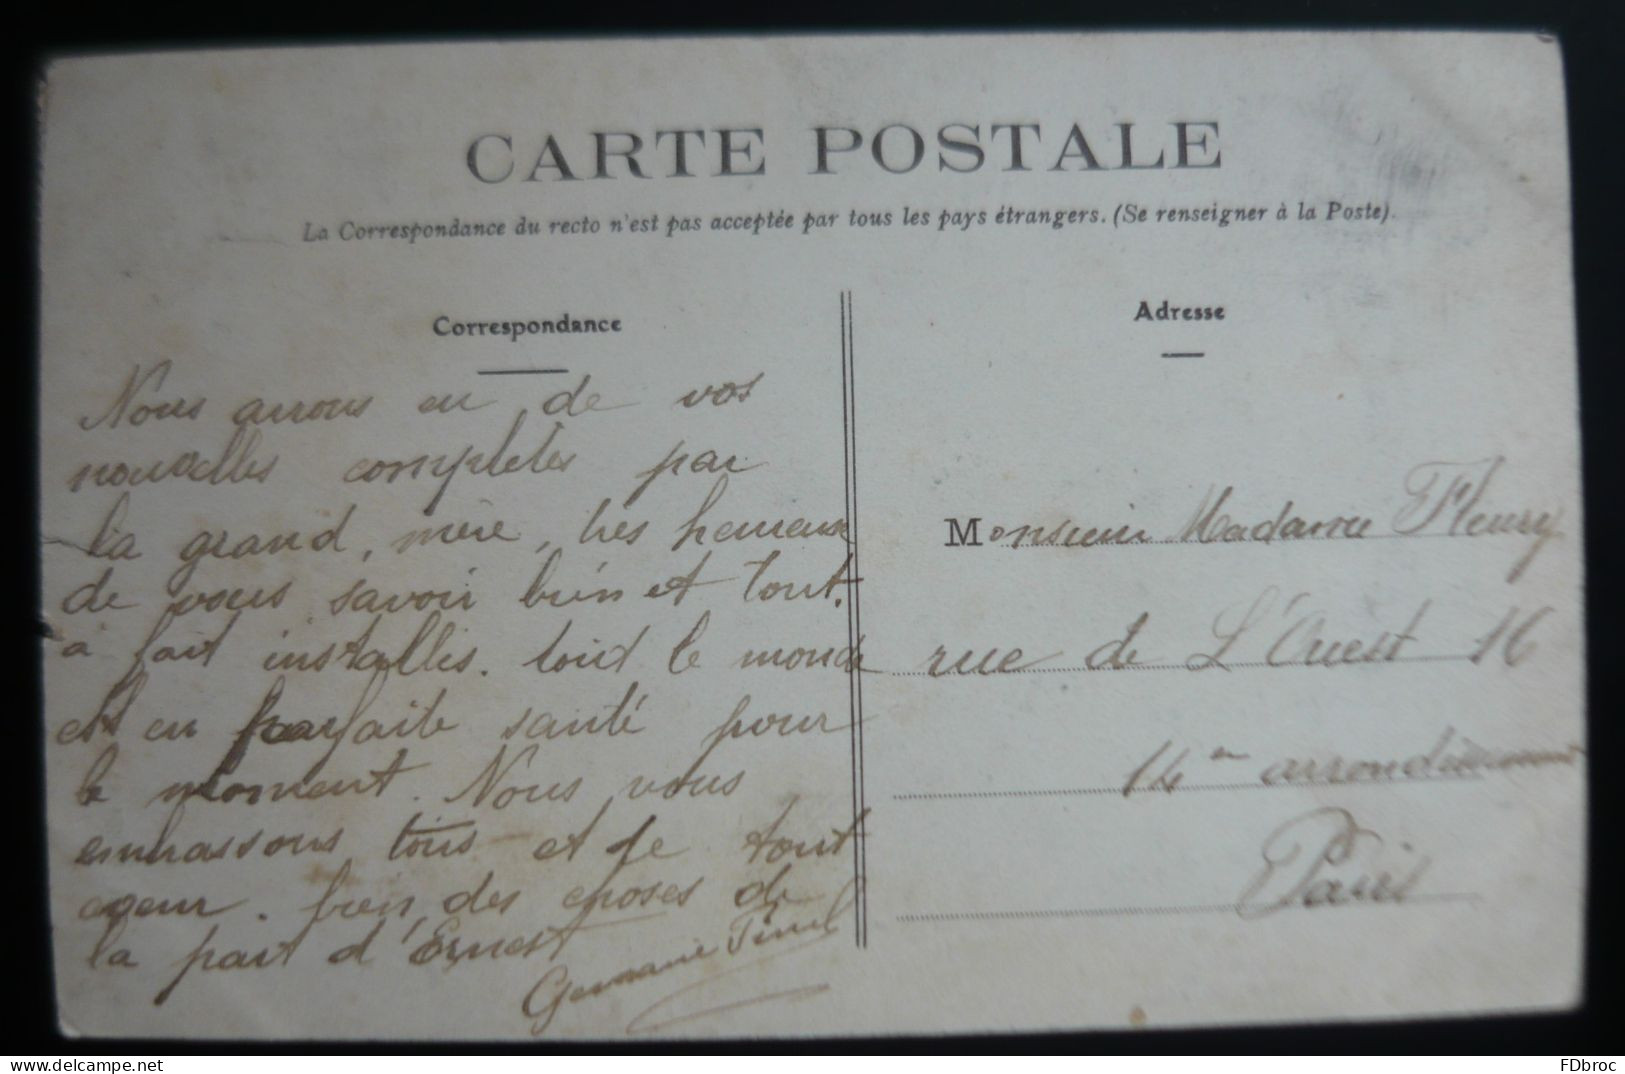 CARTE POSTALE
La Correspondance du recto n'est pas acceptée par tous les pays étrangers. (Se renseigner à la Poste).
Correspondance
Nous avons eu de vos
nouvelles complètes par
la grand, mère, très heureux
de vous savoir bien et tout.
à fait installés. tout le monde
est en parfaite santé pour
le moment. Nous vous
embrassons tous et de tout
coeur. bien des choses de
la part d'Ernest
Germaine
Adresse
Monsieur Madame Fleury
rue de L'Ouest 16
14 em arrondissement
Paris
delcampe.net
FDbroc